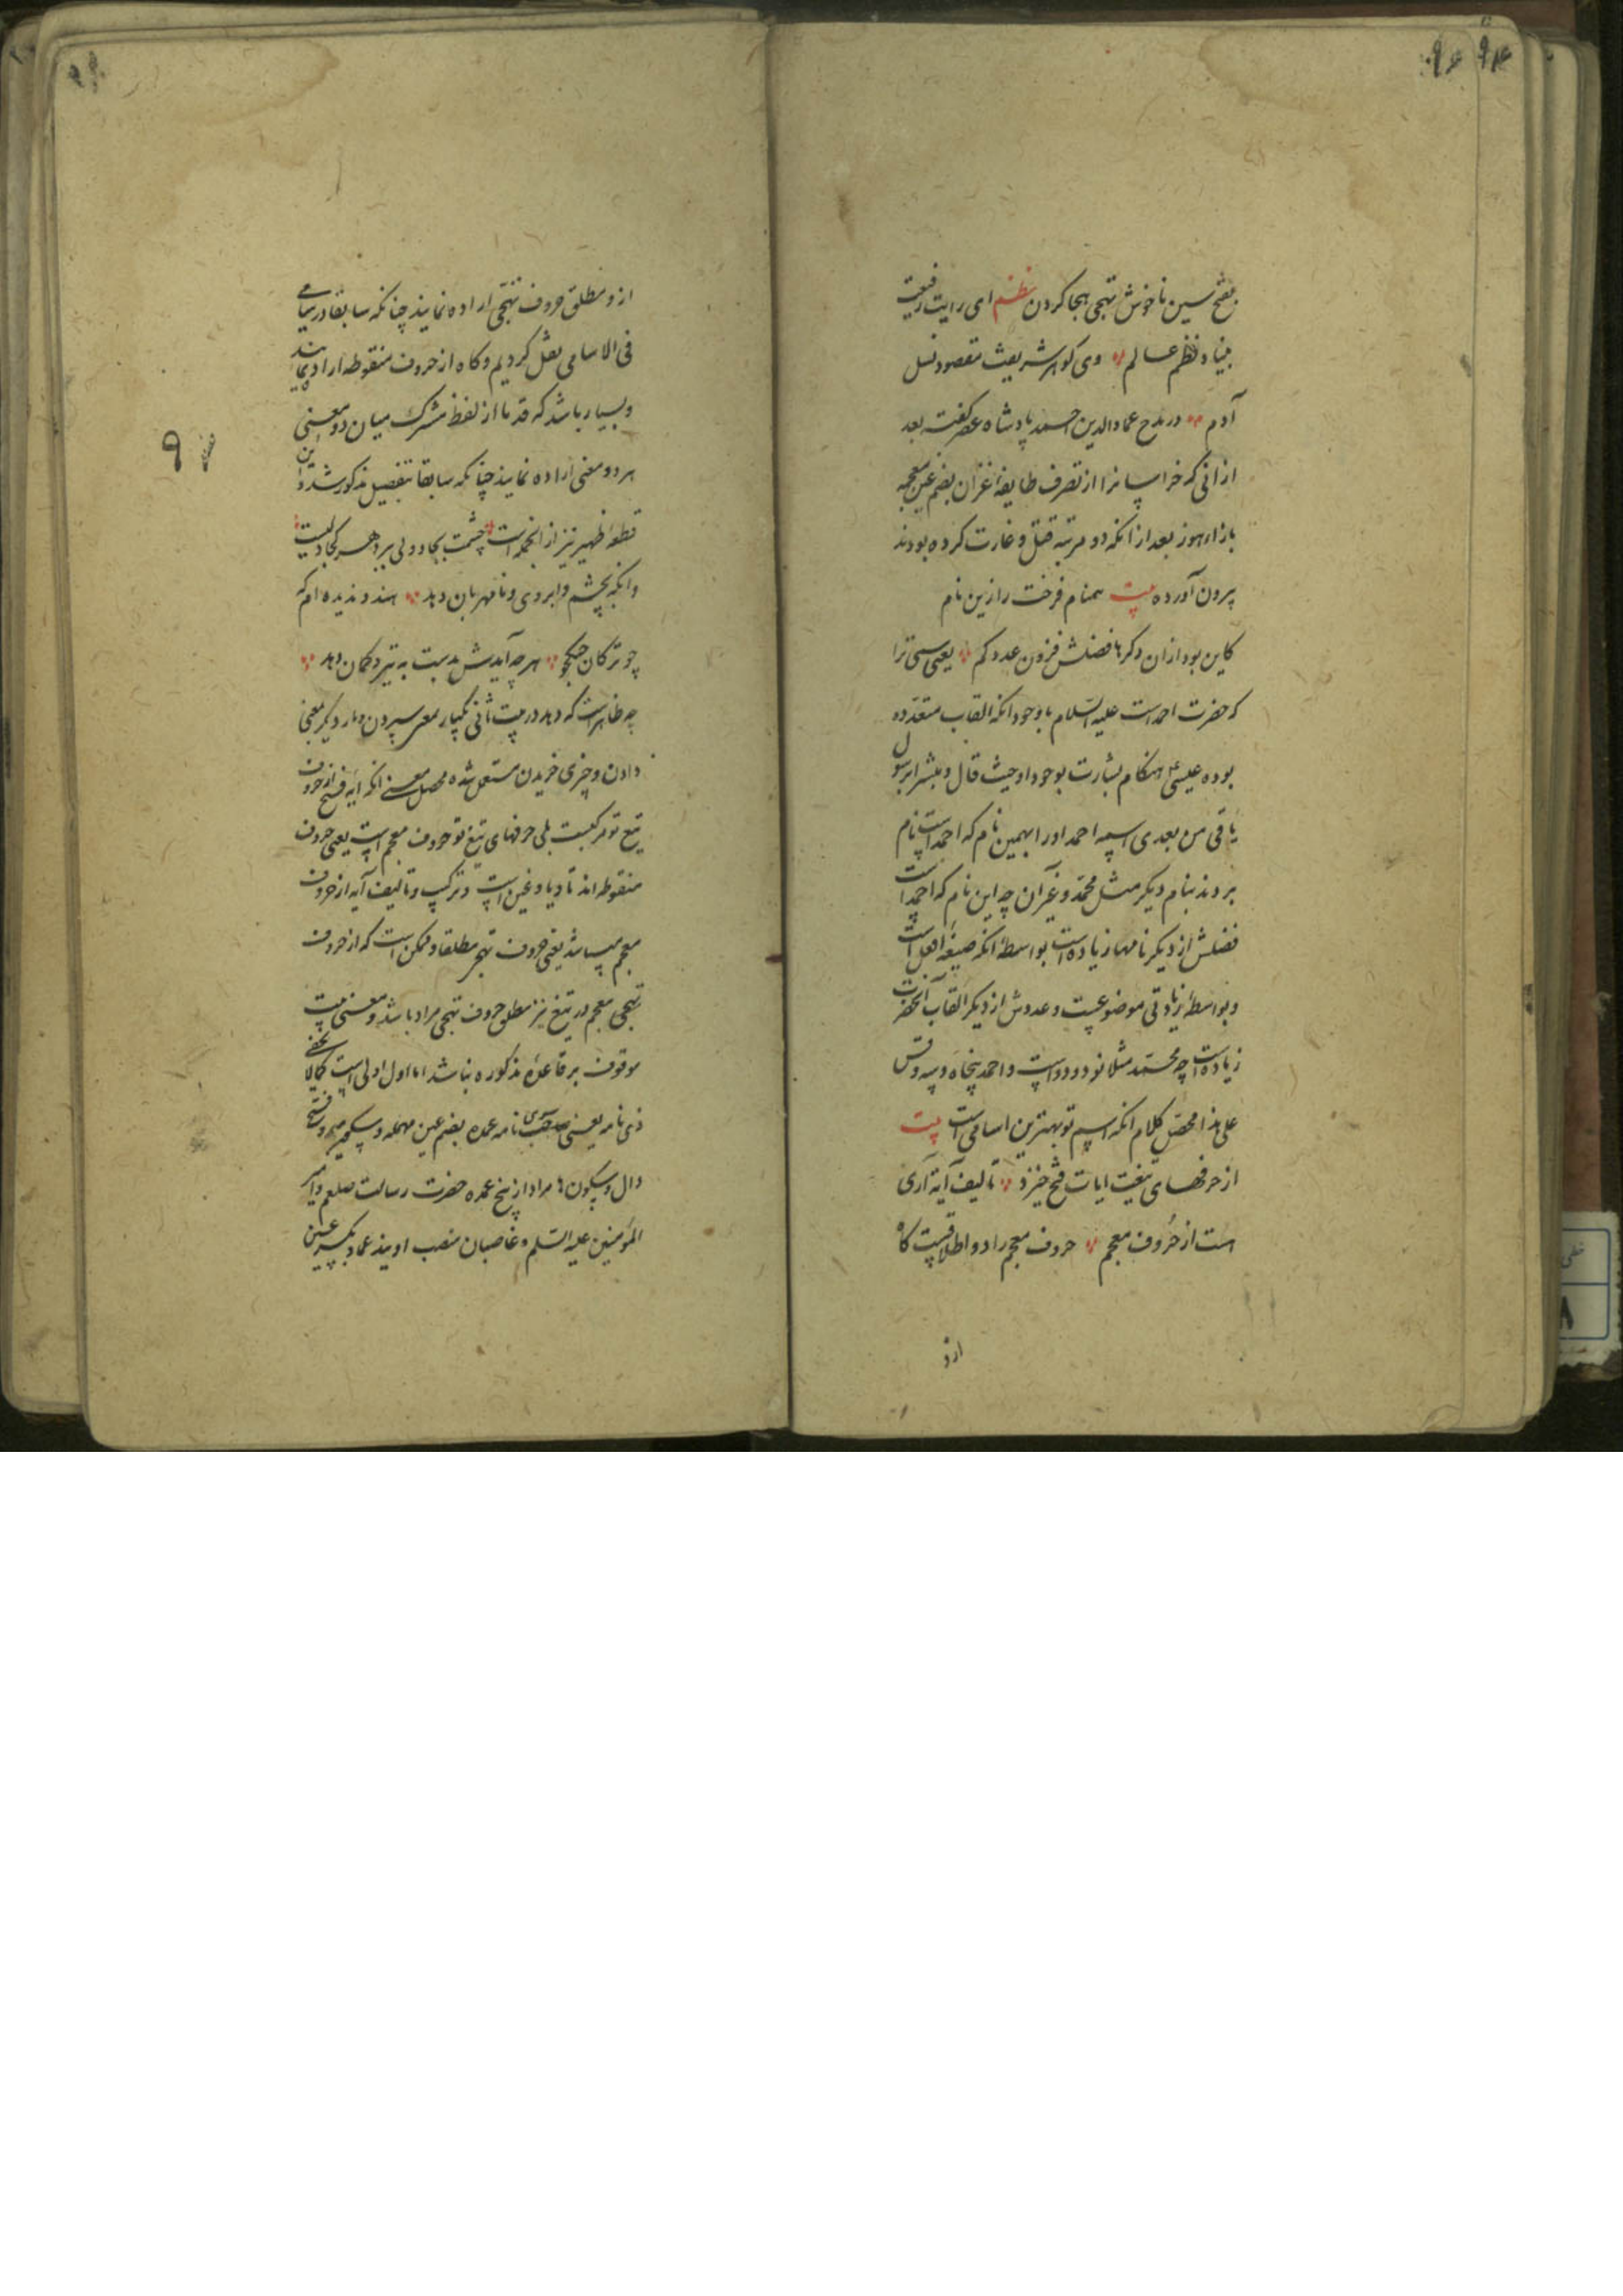 بفتح سین ناخوش تهجی هجا کردن نظم ای رایت رفیعت
بنیاد نظم عالم وی گوهر شریفت مقصود نسل
آدم در مدح عماد الدین احمد پادشاه عصر گفته بعد
از انی که خراسانرا از تصرف طایفهٔ غزان بضم غین معجمه
باز از بعد از انکه دو مرتبه قتل و غارت کرده بودند
بیرون آورده بیت همنام فرخت را زین نام
کاین بود ازان دگرها فضلش فزون عدد کم یعنی سمی ترا
که حضرت احمد است علیه السلام با وجود انکه القاب متعدده
بوده عیسی ع هنکام بشارت بوجود او حیث قال و مبشرا برسول
یاتی من بعدی اسمه احمد اورا بهمین نام که احمد است نام
بردند بنام دیکر مثل محمد و غیر آن چه این نام که احمد است
فضلش از دیکر نامها زیاده است بواسطهٔ انکه صیغهٔ افعل است
و بواسطهٔ زیادتی موضوعست و عددش از دیکر القاب آنحضرت
زیاده است چه محمد مثلا نود و دو است و احمد پنجاه و سه و قس
علی هذا محصل کلام انکه اسم تو بهترین اسامی است بیت
از حرفهای تیغت ایات فتح خیزد تالیف آیه آری
است از حروف معجم حروف معجم را دو اطلاقست کاه
ازو
ازو مطلق حروف تهجی اراده نمایند چنانکه سابقا در سامی
فی الاسامی نقل کردیم و کاه از حروف منقوطه اراده نمایند
و بسیار باشد که قدما از لفظ مشترک میان دو معنی
هر دو معنی اراده نمایند چنانکه سابقا بتفصیل مذکور شد و این
قطعهٔ ظهیر نیز از انجمله است چشمت بجادوئی ببرد هر کجا دلیست
وانکه بچشم و ابروی نامهربان دهد هندو ندیده ام که
چو ترکان جنگجو هر چه آیدش بدست به تیر و کمان دهد
چه ظاهر است که دهد در بیت ثانی یکبار بمعنی سپردن و بار دیکر بمعنی
دادن و چیزی خریدن مستعمل شده محصل معنی انکه آیه فتح از حروف
تیغ تو مرکبست بلی حرفهای تیغ تو حروف معجم است یعنی حروف
منقوطه اند تا و یا و غین است و ترکیب و تالیف آیه از حروف
معجم میباشد یعنی حروف تهجی مطلقا و ممکن است که از حروف
تهجی معجم در تیغ نیز مطلق حروف تهجی مراد باشد و معنی بیت
موقوف بر قاعدهٔ مذکوره نباشد اما اول اولی است کمالا یخفی
ذی نامه یعنی صاحب نامه عمده بضم عین مهمله و سکون میم و فتح
دال و سکون ها مراد از عمده حضرت رسالت صلعم و امیر
المؤمنین علیه السلم و غاصبان منصب اویند عماد بکسر عین